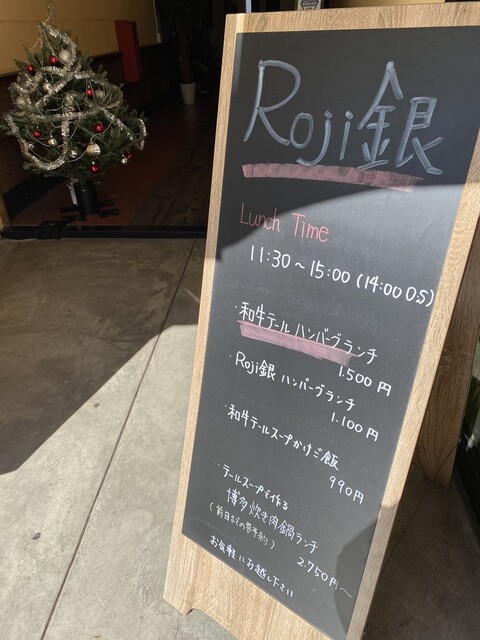 Roji銀
Lunch Time
11:30～15:00(14:00 OS)
・和牛テールハンバーグランチ
1.500円
・Roji銀ハンバーグランチ
1.100円
・和牛テールスープかけご飯
990円
・テールスープで作る
博多炊き肉鍋ランチ
(前日までの要予約)
2.750円～
お気軽にお越し下さい